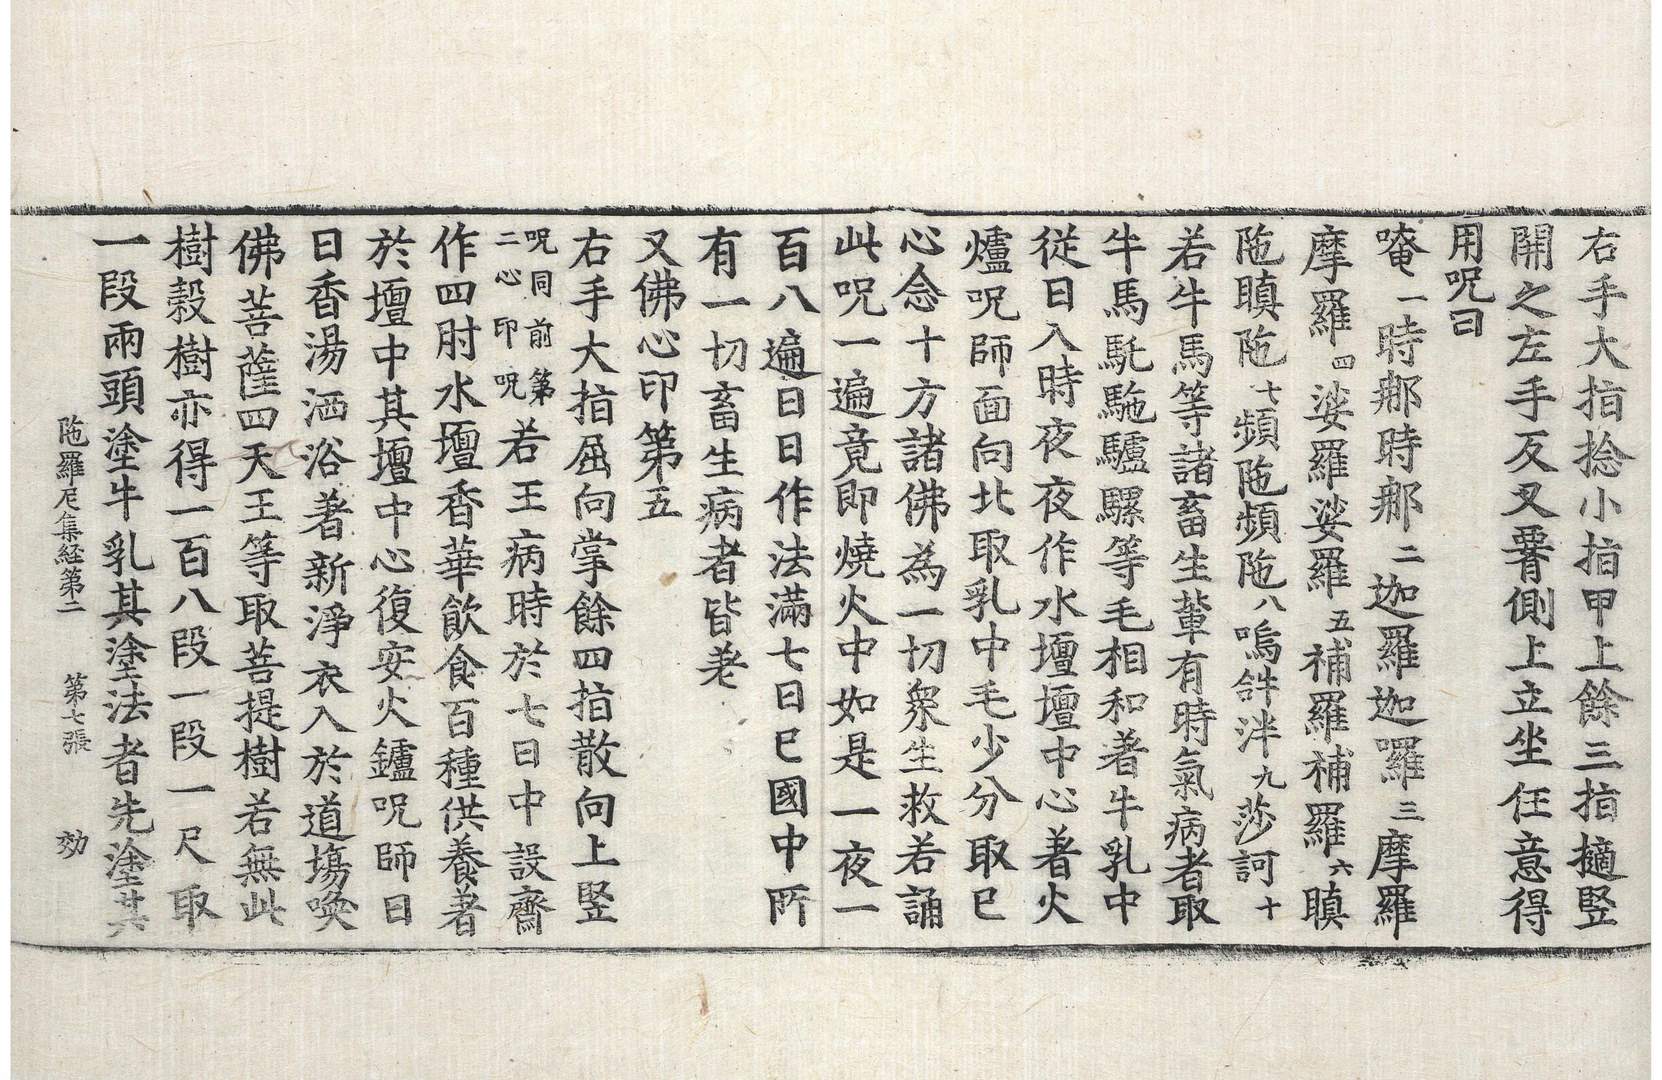 右手大指捻小指甲上餘三指擿竪
開之左手反叉臀側上立坐任意得
用呪曰
唵一時那時那二迦羅迦囉三摩羅
摩羅四娑羅娑羅五補羅補羅六瞋
陁瞋陁七頻陁頻陁八嗚𤙖泮九莎訶十
若牛馬等諸畜生輩有時氣病者取
牛馬馲駞驢騾等毛相和著牛乳中
從日入時夜夜作水壇壇中心著火
爐呪師面向北取乳中毛少分取已
心念十方諸佛為一切衆生救若誦
此呪一遍竟即燒火中如是一夜一
百八遍日日作法滿七日已國中所
有一切畜生病者皆差
又佛心印第五
右手大指屈向掌餘四指散向上竪
呪同前第
二心印呪若王病時於七日中設齋
作四肘水壇香華飲食百種供養著
於壇中其壇中心復安火鑪呪師日
日香湯洒浴著新淨衣入於道塲喚
佛菩薩四天王等取菩提樹若無此
樹穀樹亦得一百八段一段一尺取
一段兩頭塗牛乳其塗法者先塗其
陁羅尼集経第二 第七張 効